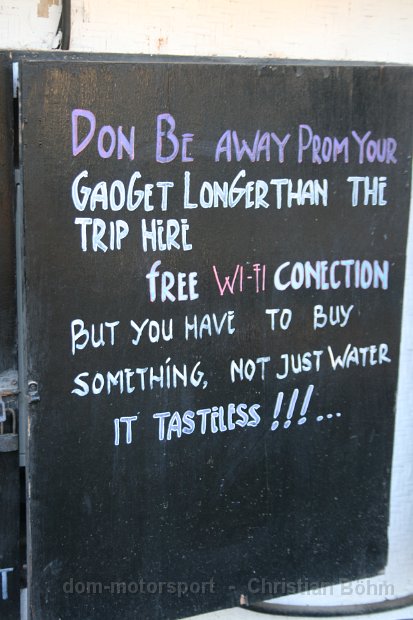 DON BE AWAY PROM YOUR
GADGET LONGER THAN THE
TRIP HERE
FREE WI-FI CONECTION
BUT YOU HAVE TO BUY
SOMETHING, NOT JUST WATER
IT TASTELESS !!!...
T
dom-motorsport - Christian Böhm